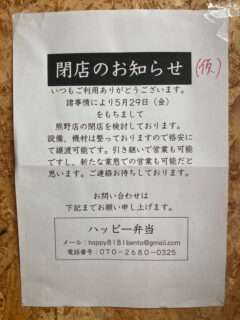 閉店のお知らせ
(仮)
いつもご利用ありがとうございます。
諸事情により5月29日（金）
をもちまして
熊野店の閉店を検討しております。
設備、機材は整っておりますので格安に
て譲渡可能です。引き継いで営業も可能
ですし、新たな業態での営業も可能だと
思います。ご連絡お待ちしております。
お問い合わせは
下記までお願い申し上げます。
ハッピー弁当
メール：happy8181bento@gmail.com
電話番号：070-2680-0325